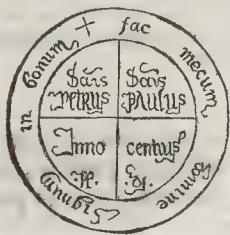 + fac mecum Domine Signum in Bonum
Scūs Scūs
PETRUS PAULUS
Inno centius
.pp.